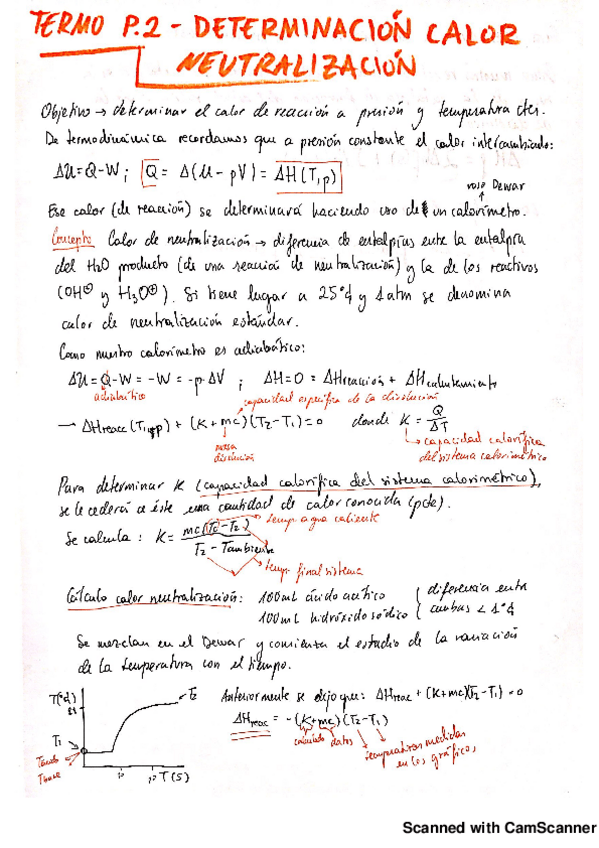 TERMO P.2 - DETERMINACIÓN CALOR
NEUTRALIZACIÓN
Objetivo → determinar el calor de reacción a presión y temperatura ctes.
De termodinámica recordamos que a presión constante el calor intercambiado:
ΔU=Q-W; Q = Δ(U-pV) = ΔH(T,p)
vaso Dewar
Ese calor (de reacción) se determinará haciendo uso de un calorímetro.
Concepto Calor de neutralización → diferencia de entalpías entre la entalpía
del H2O producto (de una reacción de neutralización) y la de los reactivos
(OH⊖ y H3O⊕). Si tiene lugar a 25°C y 1atm se denomina
calor de neutralización estándar.
Como nuestro calorímetro es adiabático:
ΔU=Q-W = -W = -p·ΔV ; ΔH=0 = ΔHreacción + ΔHcalentamiento
adiabático
capacidad específica de la disolución
→ ΔHreacc(T1,p) + (K+mc)(T2-T1)=0 donde K = Q/ΔT
masa disolución
capacidad calorífica
del sistema calorimétrico
Para determinar K (capacidad calorífica del sistema calorimétrico),
se le cederá a éste una cantidad de calor conocida (pcte).
temp agua caliente
Se calcula: K = mc(Tc-T2) / T2 - Tambiente
temp final sistema
Cálculo calor neutralización: 100mL ácido acético
100mL hidróxido sódico
diferencia entre
ambas < 1°C
Se mezclan en el Dewar y comienza el estudio de la variación
de la temperatura con el tiempo.
T2
T1
10
T(S)
Anteriormente se dijo que: ΔHreac + (K+mc)(T2-T1)=0
ΔHreac = -(K+mc)(T2-T1)
calculado datos
temperaturas medidas
en los gráficos
Scanned with CamScanner